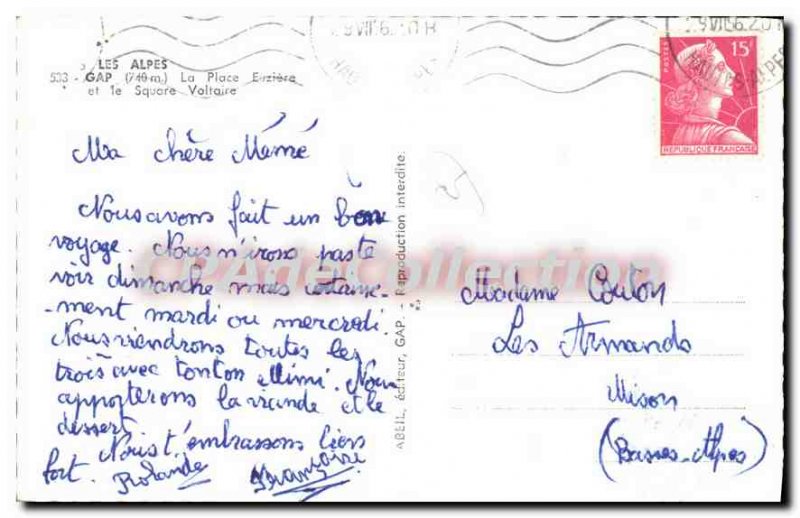 LES ALPES
533 - GAP (740 m.) La Place Euzière
et le Square Voltaire
POSTES 15F
REPUBLIQUE FRANÇAISE
HAUTES-ALPES
Ma chère Mémé
Nous avons fait un bon
voyage. Nous n'irons pas te
voir dimanche mais certaine-
-ment mardi ou mercredi.
Nous viendrons toutes les
trois avec tonton Mimi. Nous
apporterons la viande et le
dessert.
Nous t'embrassons bien
fort. Rolande Françoise
ABEIL, éditeur, GAP. - Reproduction interdite.
CPArteCollection
Madame Couton
Les Armands
Mison
(Basses-Alpes)